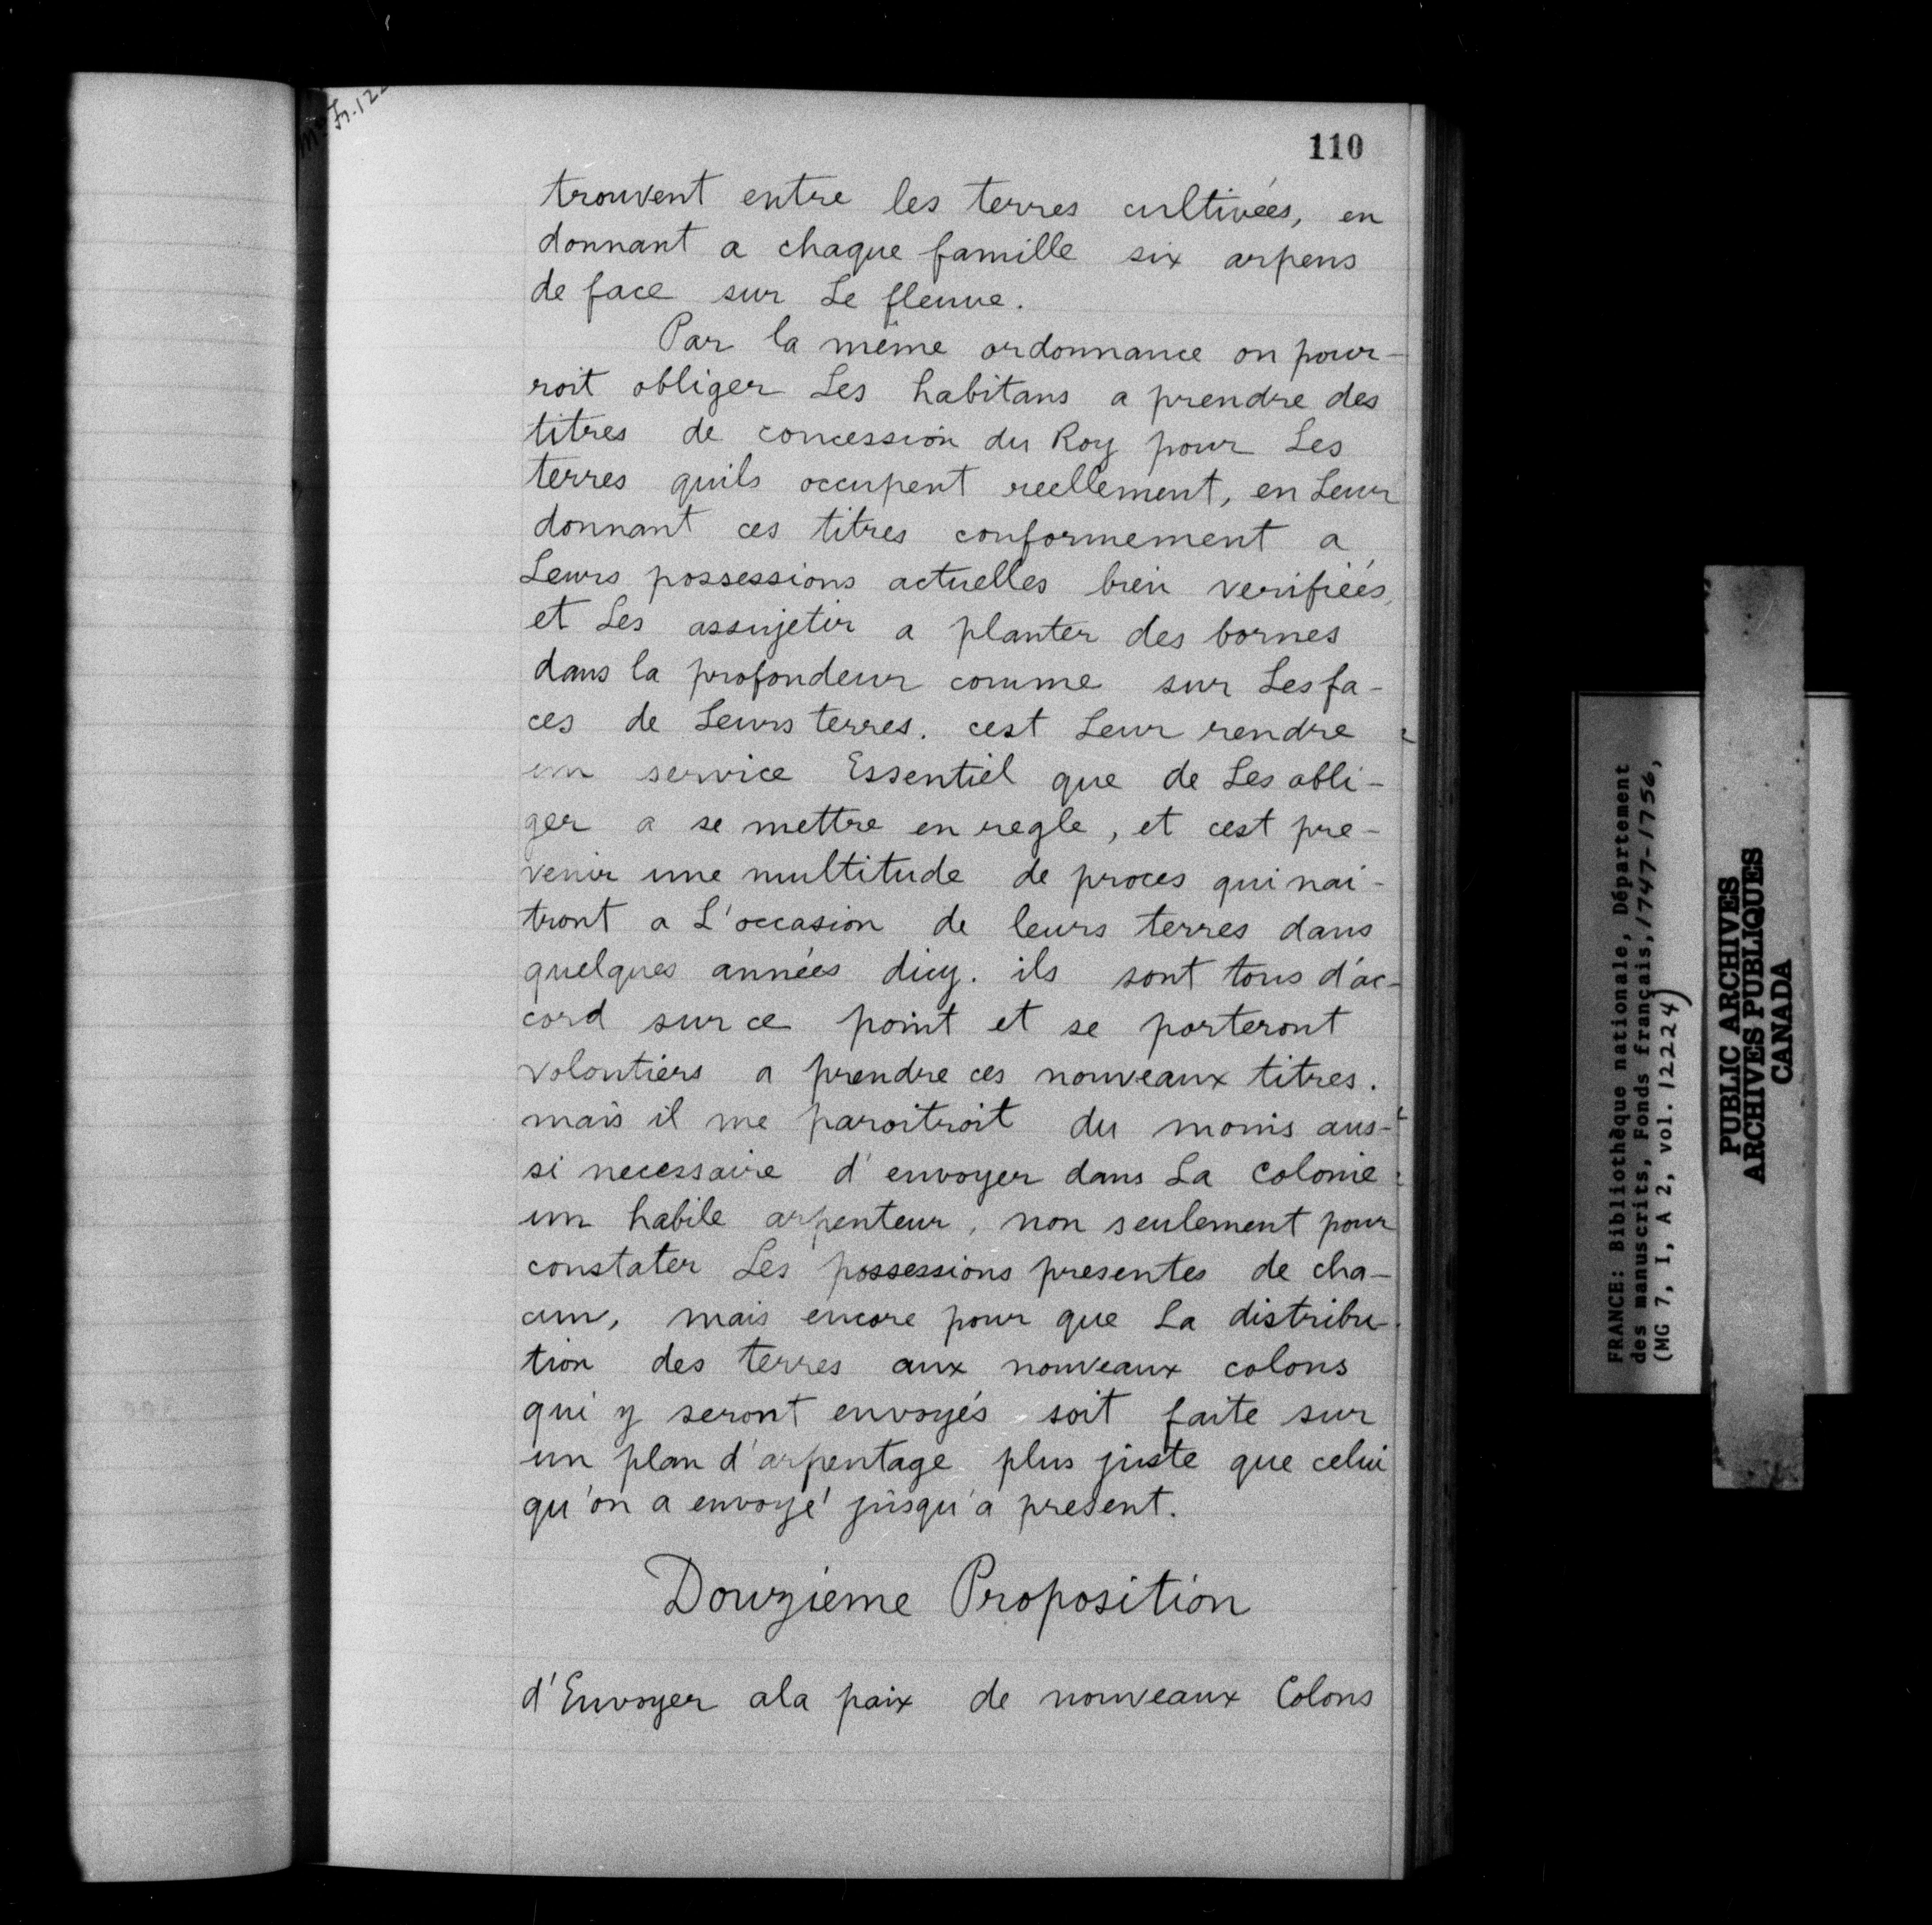 110
trouvent entre les terres cultivées, en
donnant a chaque famille six arpens
de face sur Le fleuve.
Par la même ordonnance on pour-
roit obliger Les habitans a prendre des
titres de concession du Roy pour Les
terres quils occupent reellement, en Leur
donnant ces titres conformement a
Leurs possessions actuelles bien verifiées,
et Les assujetir a planter des bornes
dans la profondeur comme sur Les fa-
ces de Leurs terres. cest Leur rendre
un service Essentiel que de Les obli-
ger a se mettre en regle, et cest pre-
venir une multitude de proces qui nai-
tront a L'occasion de leurs terres dans
quelques années dicy. ils sont tous d'ac-
cord sur ce point et se porteront
volontiers a prendre ces nouveaux titres.
mais il me paroitroit du moins aus-
si necessaire d'envoyer dans La Colonie
un habile arpenteur, non seulement pour
constater Les possessions presentes de cha-
cun, mais encore pour que La distribu-
tion des terres aux nouveaux colons
qui y seront envoyés soit faite sur
un plan d'arpentage plus juste que celui
qu'on a envoyé jusqu'a present.
Douzieme Proposition
d'Envoyer ala paix de nouveaux Colons
FRANCE: Bibliothèque nationale, Département
des manuscrits, Fonds français, 1747-1756,
(MG 7, I, A 2, vol. 12224)
PUBLIC ARCHIVES
ARCHIVES PUBLIQUES
CANADA